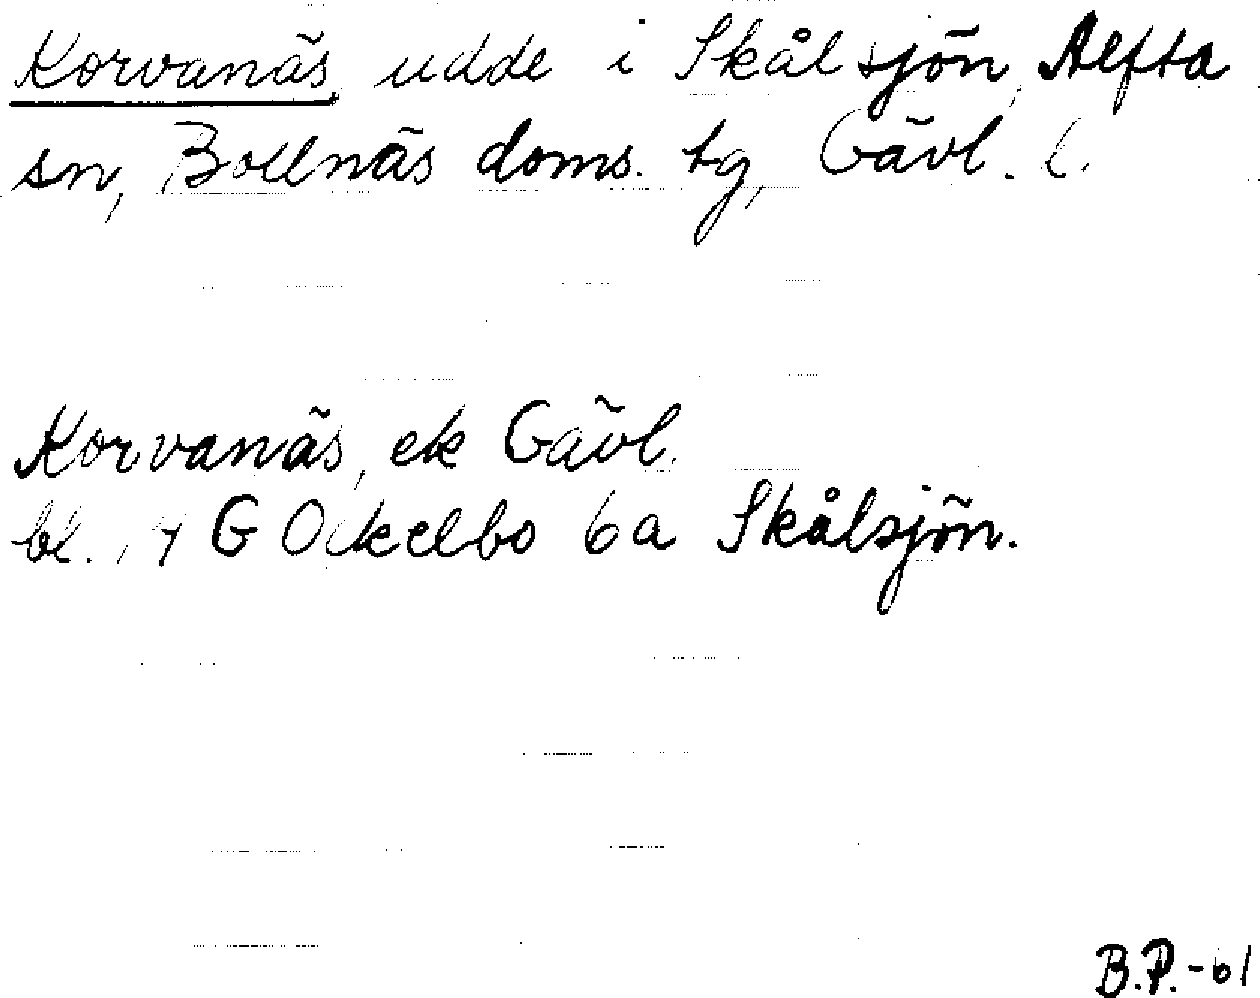 Korvanäs, udde i Skålsjön, Alfta
sn, Bollnäs doms. tg, Gävl. l.
Korvanäs, ek Gävl.
bl. 14 G Ockelbo 6a Skålsjön.
B.P.-61